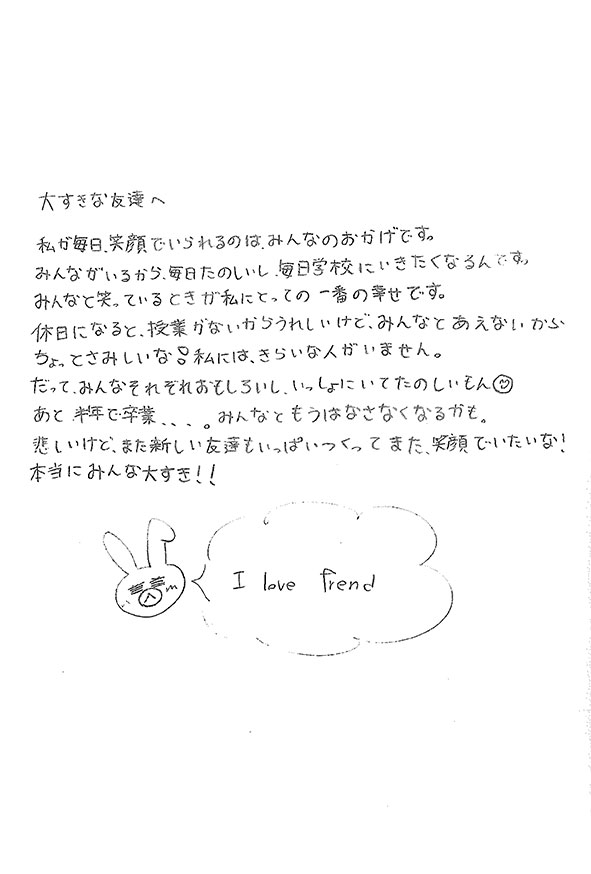 大すきな友達へ
私が毎日、笑顔でいられるのは、みんなのおかげです。
みんながいるから、毎日たのしいし、毎日学校にいきたくなるんです。
みんなと笑っているときが私にとっての一番の幸せです。
休日になると、授業がないからうれしいけど、みんなとあえないから
ちょっとさみしいな!私には、きらいな人がいません。
だって、みんなそれぞれおもしろいし、いっしょにいてたのしいもん☺
あと半年で卒業、、、。みんなともうはなさなくなるかも。
悲しいけど、また新しい友達もいっぱいつくってまた、笑顔でいたいな!
本当にみんな大すき!!
I love frend